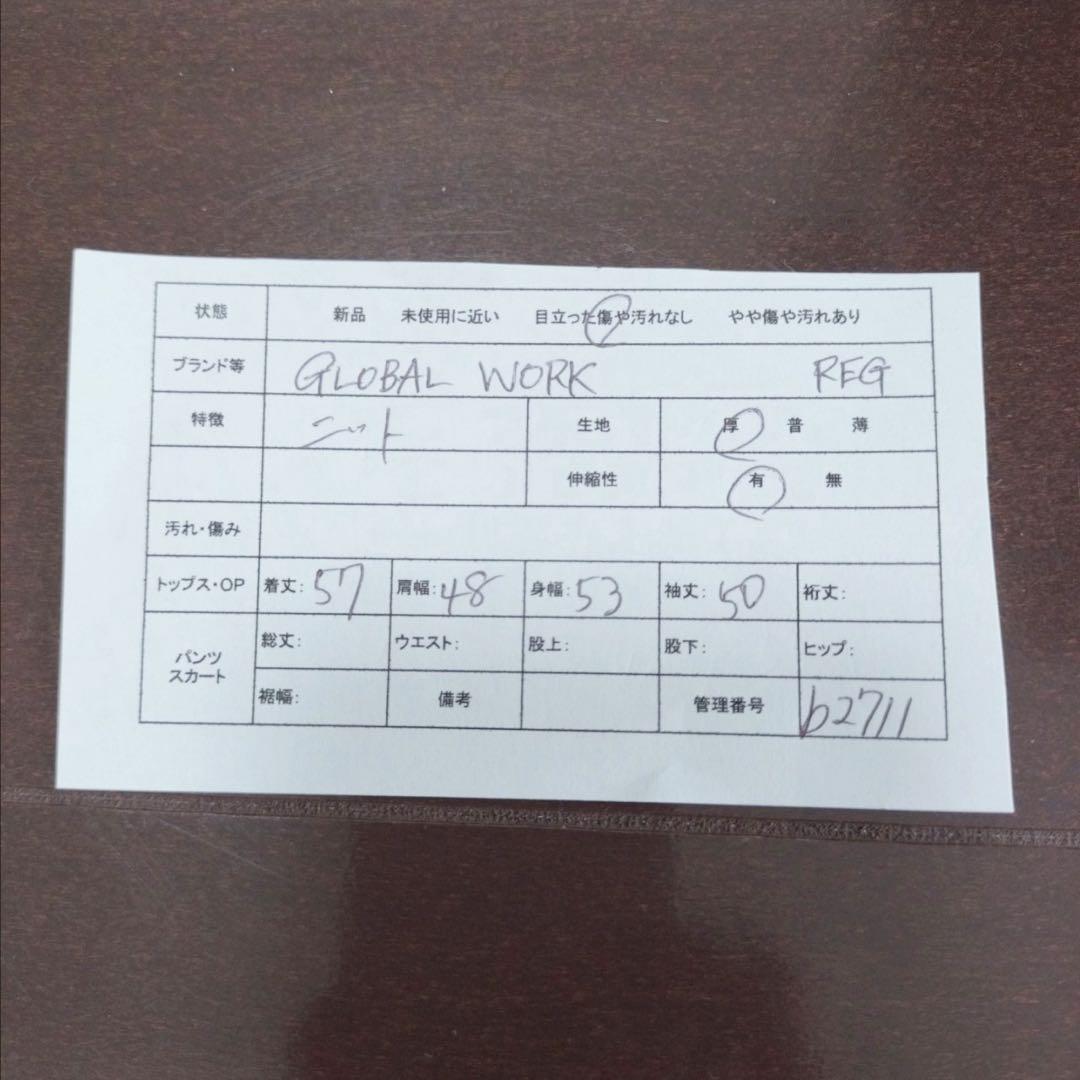 状態 新品 未使用に近い 目立った傷や汚れなし やや傷や汚れあり
ブランド等 GLOBAL WORK REG
特徴 ニット 生地 厚 普 薄
伸縮性 有 無
汚れ・傷み
トップス・OP 着丈:57 肩幅:48 身幅:53 袖丈:50 裄丈:
パンツ スカート 総丈: ウエスト: 股上: 股下: ヒップ:
裾幅: 備考 管理番号 b2711